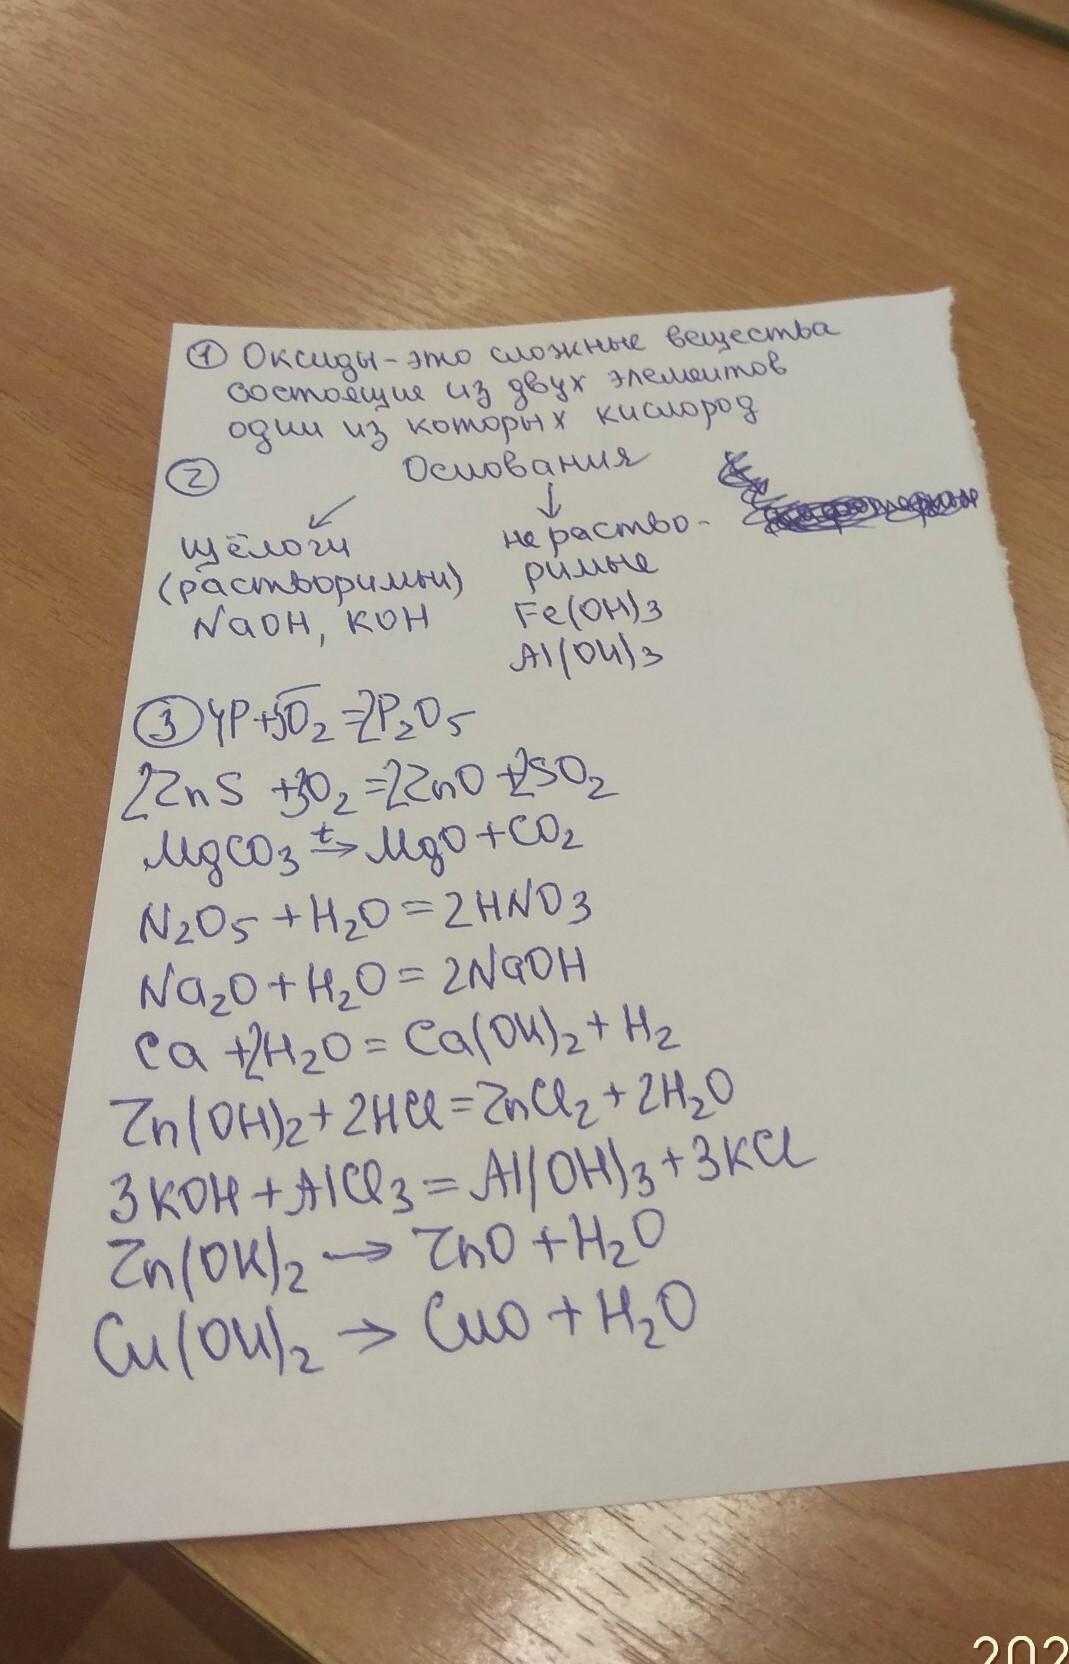 ① Оксиды - это сложные вещества
состоящие из двух элементов
один из которых кислород
② Основания
щёлочи
(растворимы)
NaOH, KOH
нераство-
римые
Fe(OH)3
Al(OH)3
③ 4P+5O2=2P2O5
2ZnS +3O2=2ZnO+2SO2
MgCO3 t→ MgO+CO2
N2O5+H2O=2HNO3
Na2O+H2O=2NaOH
Ca+2H2O=Ca(OH)2+H2
Zn(OH)2+2HCl=ZnCl2+2H2O
3KOH+AlCl3=Al(OH)3+3KCl
Zn(OH)2→ZnO+H2O
Cu(OH)2→CuO+H2O
202